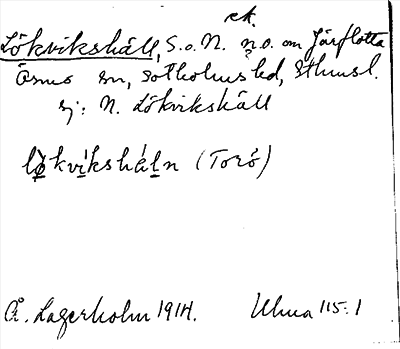 ek.
Lökvikshäll, S. o. N. n.o. om Järflotta
Ösmo sn, Sotholms hd, Sthmsl.
ej: N. Lökvikshäll
lökvikshäln (Torö)
Å. Lagerholm 1914. Uhma 115:1